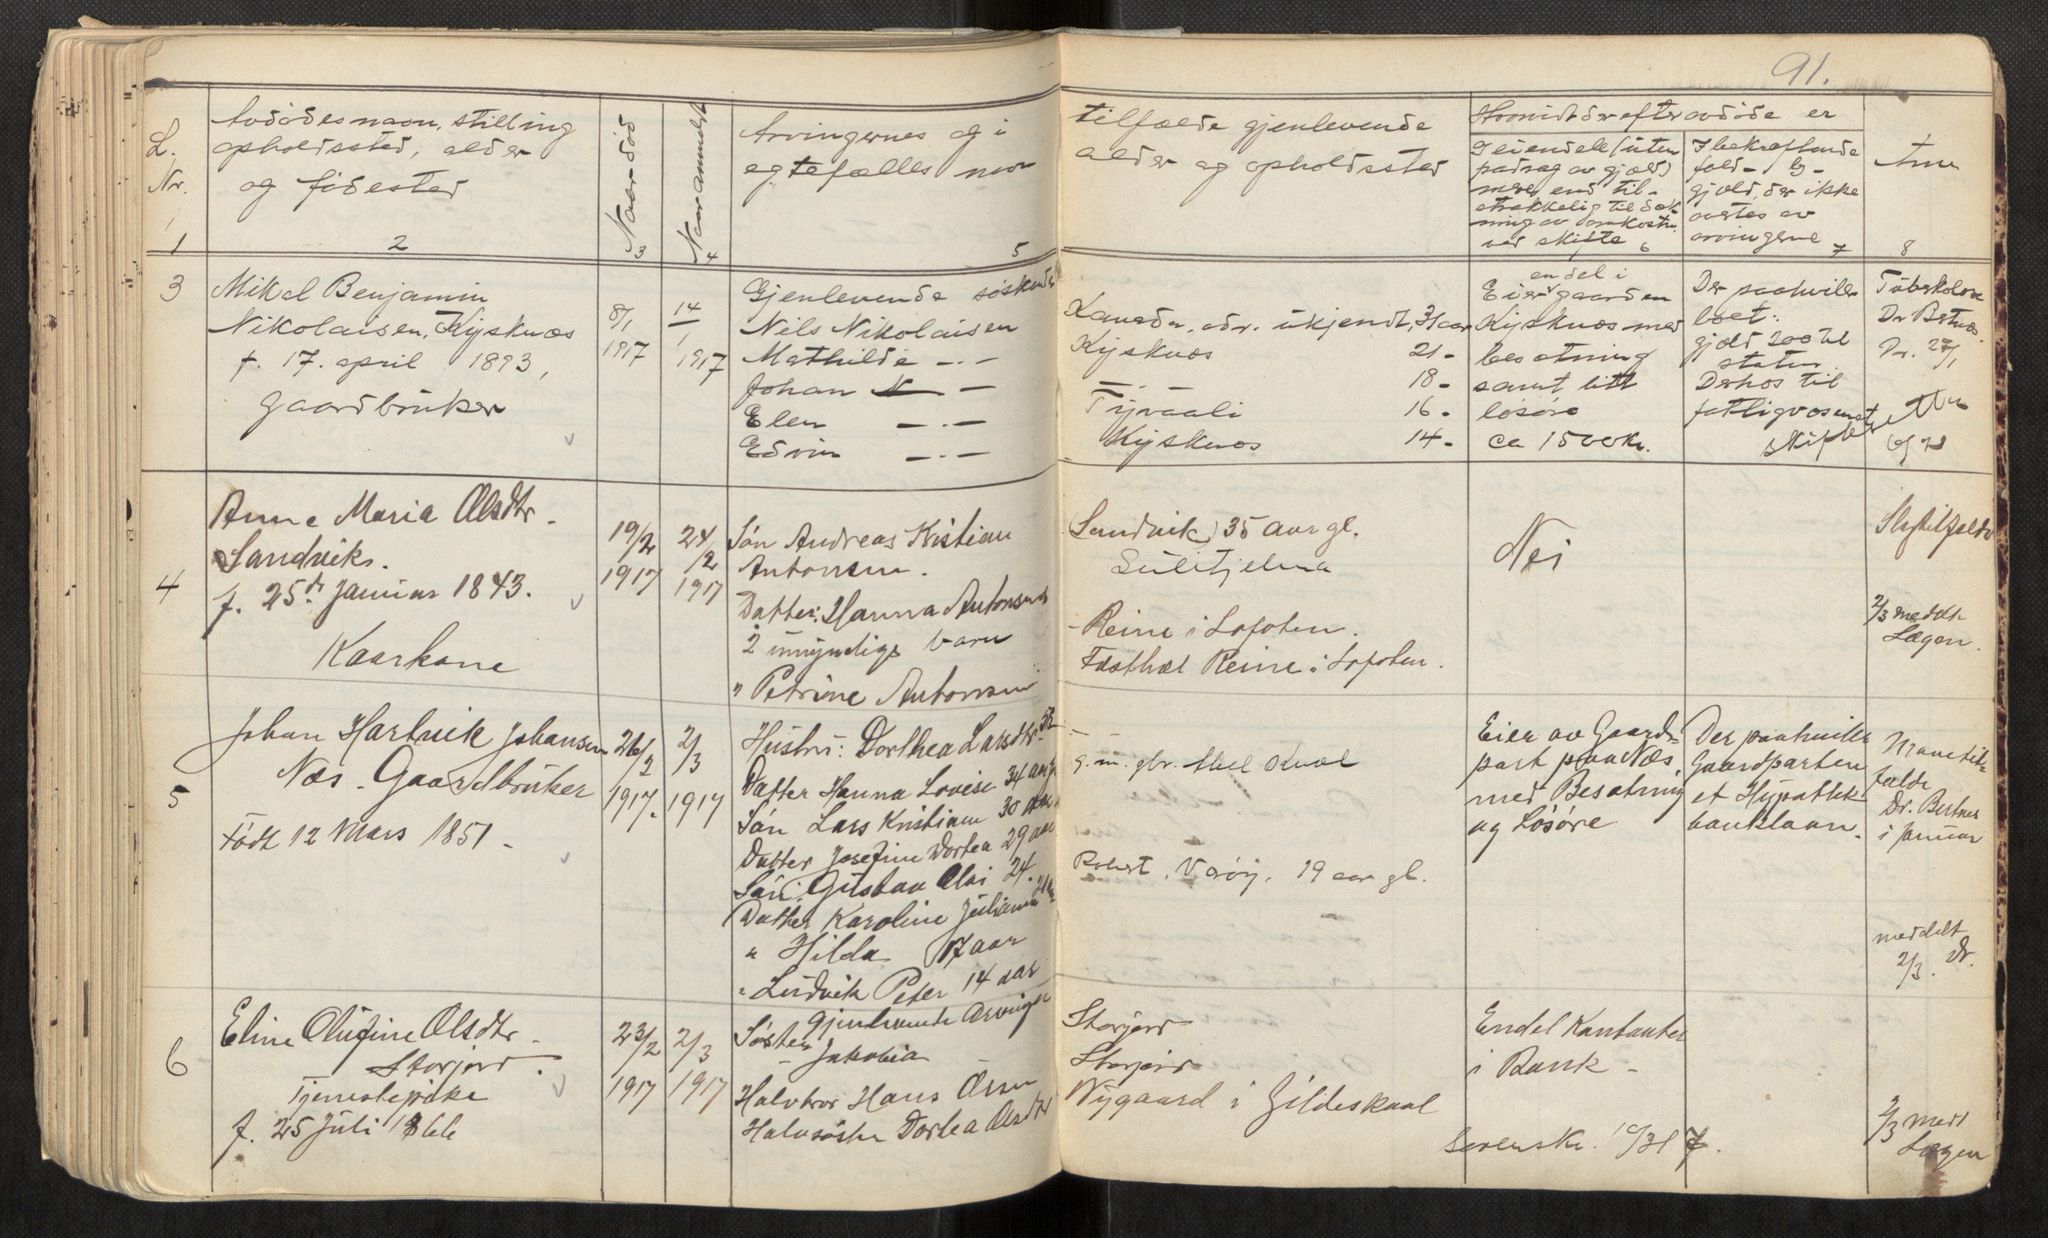 91.
L.
Nr.
1
Avdødes navn, stilling
opholdssted, alder
og fødested
2
Naar død
3
Naar anmeldt
4
Arvingernes og i
egtefælles navn
5
tilfælde gjenlevende
alder og opholdssted
Hvorvidt der efter avdøde er
I eiendele (uten
fradrag av gjæld)
mere end til-
strækkelig til dæk-
ning av omkostn.
ved skifte 6
gjæld, der ikke
overtas av
arvingerne 7
Anm
8
3
Mikal Benjamin
Nikolaisen, Kjsknæs
f. 17. april 1893,
gaardbruker
8/1
1917
14
1
1917
Gjenlevende søskende
Nils Nikolaisen
Mathilde -.-
Johan -
Elen -.-
Edvin -.-
Kanada, adr. ukjendt, 31 aar
Kjsknæs 21-
-.- 18-
16-
Kjsknæs 14-
en del i
Eier gaarden
Kjsknæs med
besætning
samt litt
løsøre
ca 1500 kr.
Der paahviler
boet:
gjæld 200 til
staten
Derhos til
fattigvæsenet
Tuberkulose
Dr. 27/1
4
Anna Maria Olsdtr.
Sandvik.
f. 25de Januar 1843.
Kaarkone
19/2
1917
24/2
1917
Søn Andreas Kristian
Antonsen.
Datter: Hanna Antonsen
2 umyndige barn
" Petrine Antonsen
(Sandvik) 35 aar gl.
Sulitjelma
- Reine i Lofoten.
Reine i Lofoten.
Nei
2/3 meddelt
Lægen.
5
Johan Hartvik Johansen
Næs. Gaardbruker
Født 12 Mars 1851.
26/2
1917.
2/3
1917
Hustru: Dorthea Larsdtr.
Datter Hanna Lovise 34 aar
Søn Lars Kristian 30 aar
Datter Josefine Dortea 29 aar
Søn: Gustav Olai 24.
Datter Karoline Juliane
" Hilda 17 aar
" Ludvik Peter 14 aar
g. m. gbr.
Værøy. 19 aar gl.
Eier av Gaards-
part paa Næs
med Besætning
og Løsøre
Der paahviler
Gaardparten
et Hypothek
banklaan.
Dr. Bertnes
i januar
meddelt
2/3. Dr.
6
Eline Olufine Olsdtr.
Storjord.
Tjenestepike
f. 25 Juli 1866
23/2
1917
2/3
1917
Gjenlevende Arvinger
Søster
- Jakobia
Halvbror Hans Olsen
Halvsøster Dortea Olsdtr
Storjord
Storjord
Nygaard i Gildeskaal
Endel Kontanter
i Bank -
2/3 medd
Lægen